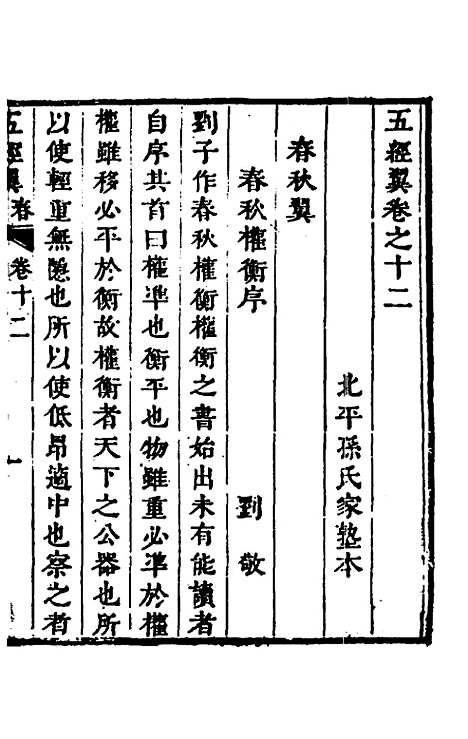 五經翼卷之十二
北平孫氏家塾本
春秋翼
春秋權衡序 劉敞
劉子作春秋權衡權衡之書始出未有能讀者
自序其首曰權準也衡平也物雖重必準於權
權雖移必平於衡故權衡者天下之公器也所
以使輕重無隱也所以使低昂適中也察之者
五經翼 春 卷十二 一